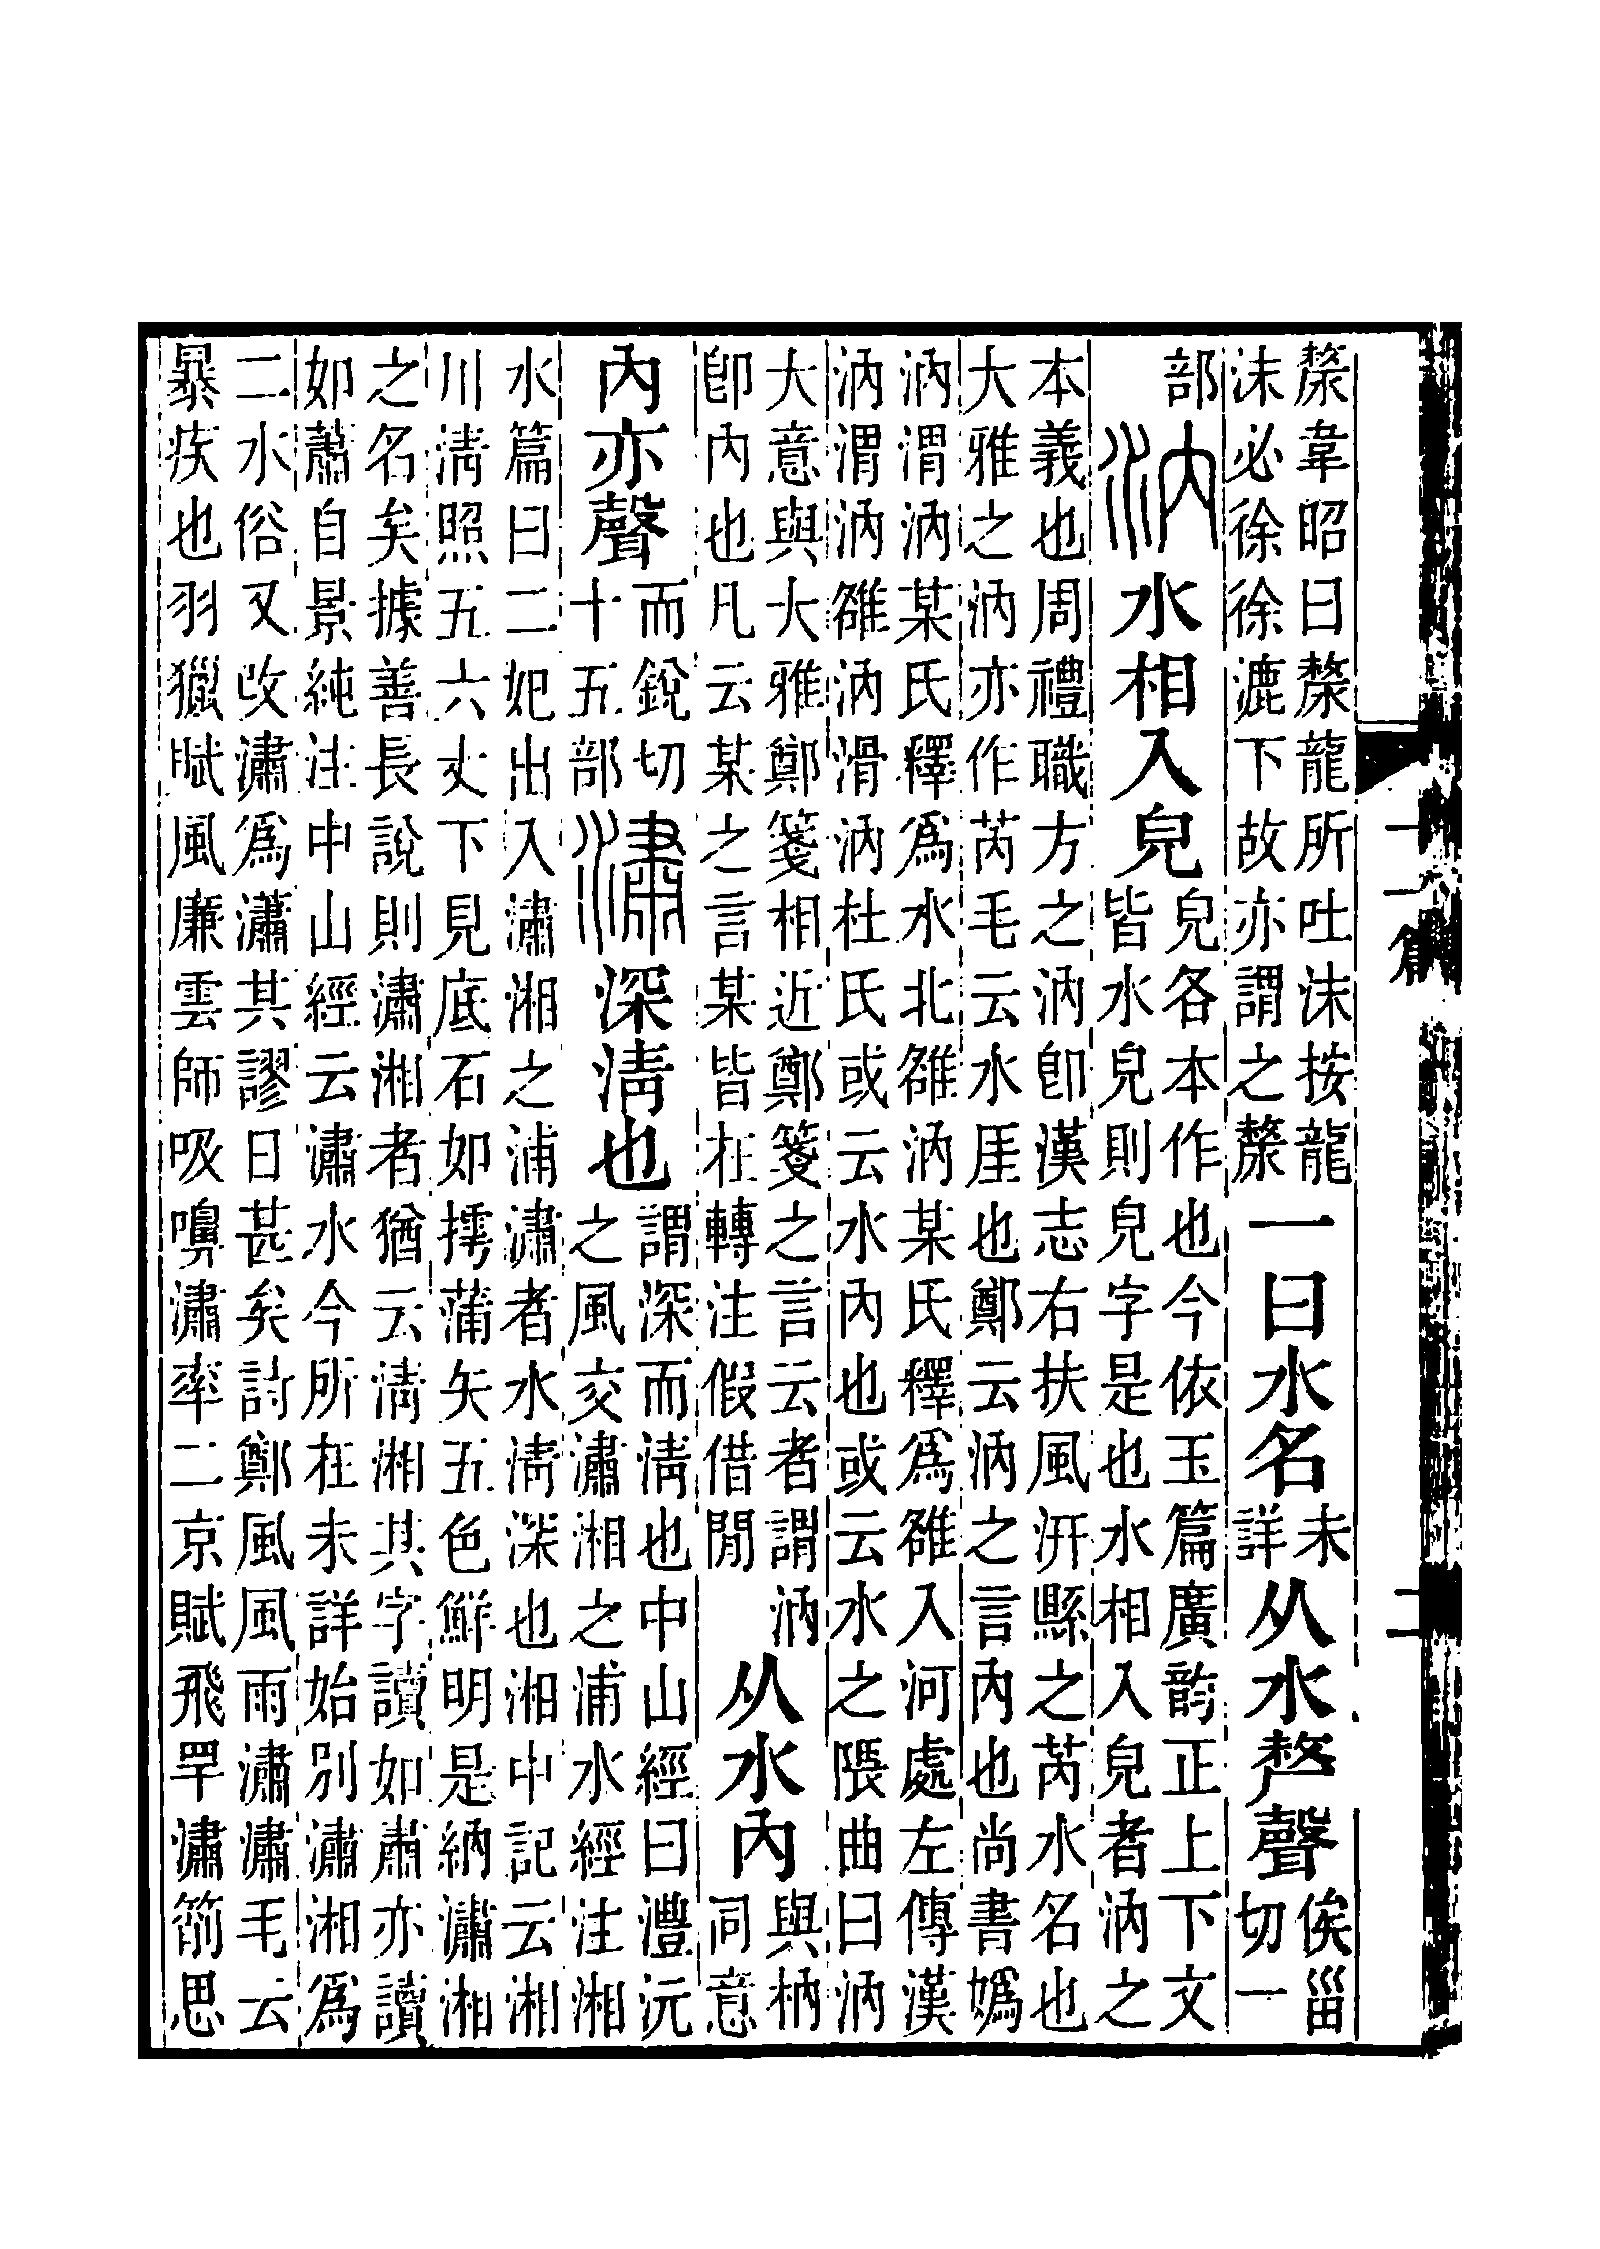 漦韋昭曰漦龍所吐沫按龍沫必徐徐漉下故亦謂之漦一曰水名未詳从水𠩺聲俟甾切一
部汭水相入皃皃各本作也今依玉篇廣韵正上下文皆水皃則皃字是也水相入皃者汭之
本義也周禮職方之汭卽漢志右扶風汧縣之芮水名也
大雅之汭亦作芮毛云水厓也鄭云汭之言內也尚書嬀
汭渭汭某氏釋爲水北雒汭某氏釋爲雒入河處左傳漢
汭渭汭雒汭滑汭杜氏或云水內也或云水之隈曲曰汭
大意與大雅鄭箋相近鄭箋之言云者謂汭卽內也凡云某之言某皆在轉注假借閒从水內與枘同意
內亦聲而銳切十五部潚深淸也謂深而淸也中山經曰澧沅之風交潚湘之浦水經注湘
水篇曰二妃出入潚湘之浦潚者水淸深也湘中記云湘
川淸照五六丈下見底石如摴蒲矢五色鮮明是納潚湘
之名矣據善長說則潚湘者猶云淸湘其字讀如肅亦讀
如蕭自景純注中山經云潚水今所在未詳始別潚湘爲
二水俗又改潚爲瀟其謬日甚矣詩鄭風風雨潚潚毛云
暴疾也羽獵賦風廉雲師吸嚊潚率二京賦飛罕潚箾思
十一篇
二